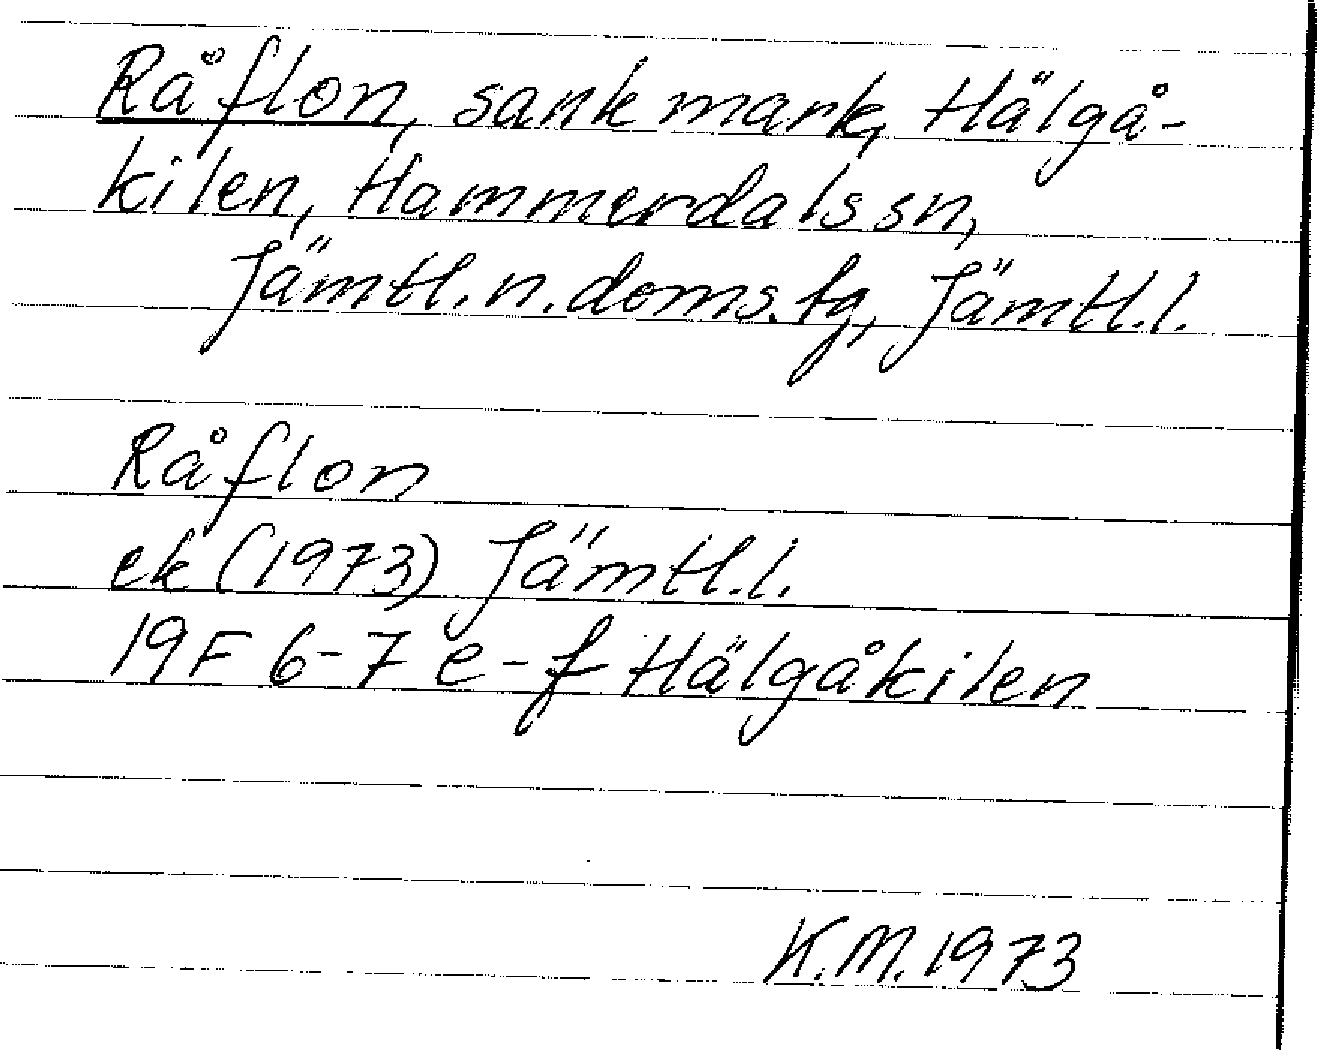 Råflon, sank mark, Hälgå-
kilen, Hammerdals sn,
Jämtl. n. doms. tg, Jämtl. l.
Råflon
ek (1973) Jämtl. l.
19F 6-7 e-f Hälgåkilen
K.M. 1973